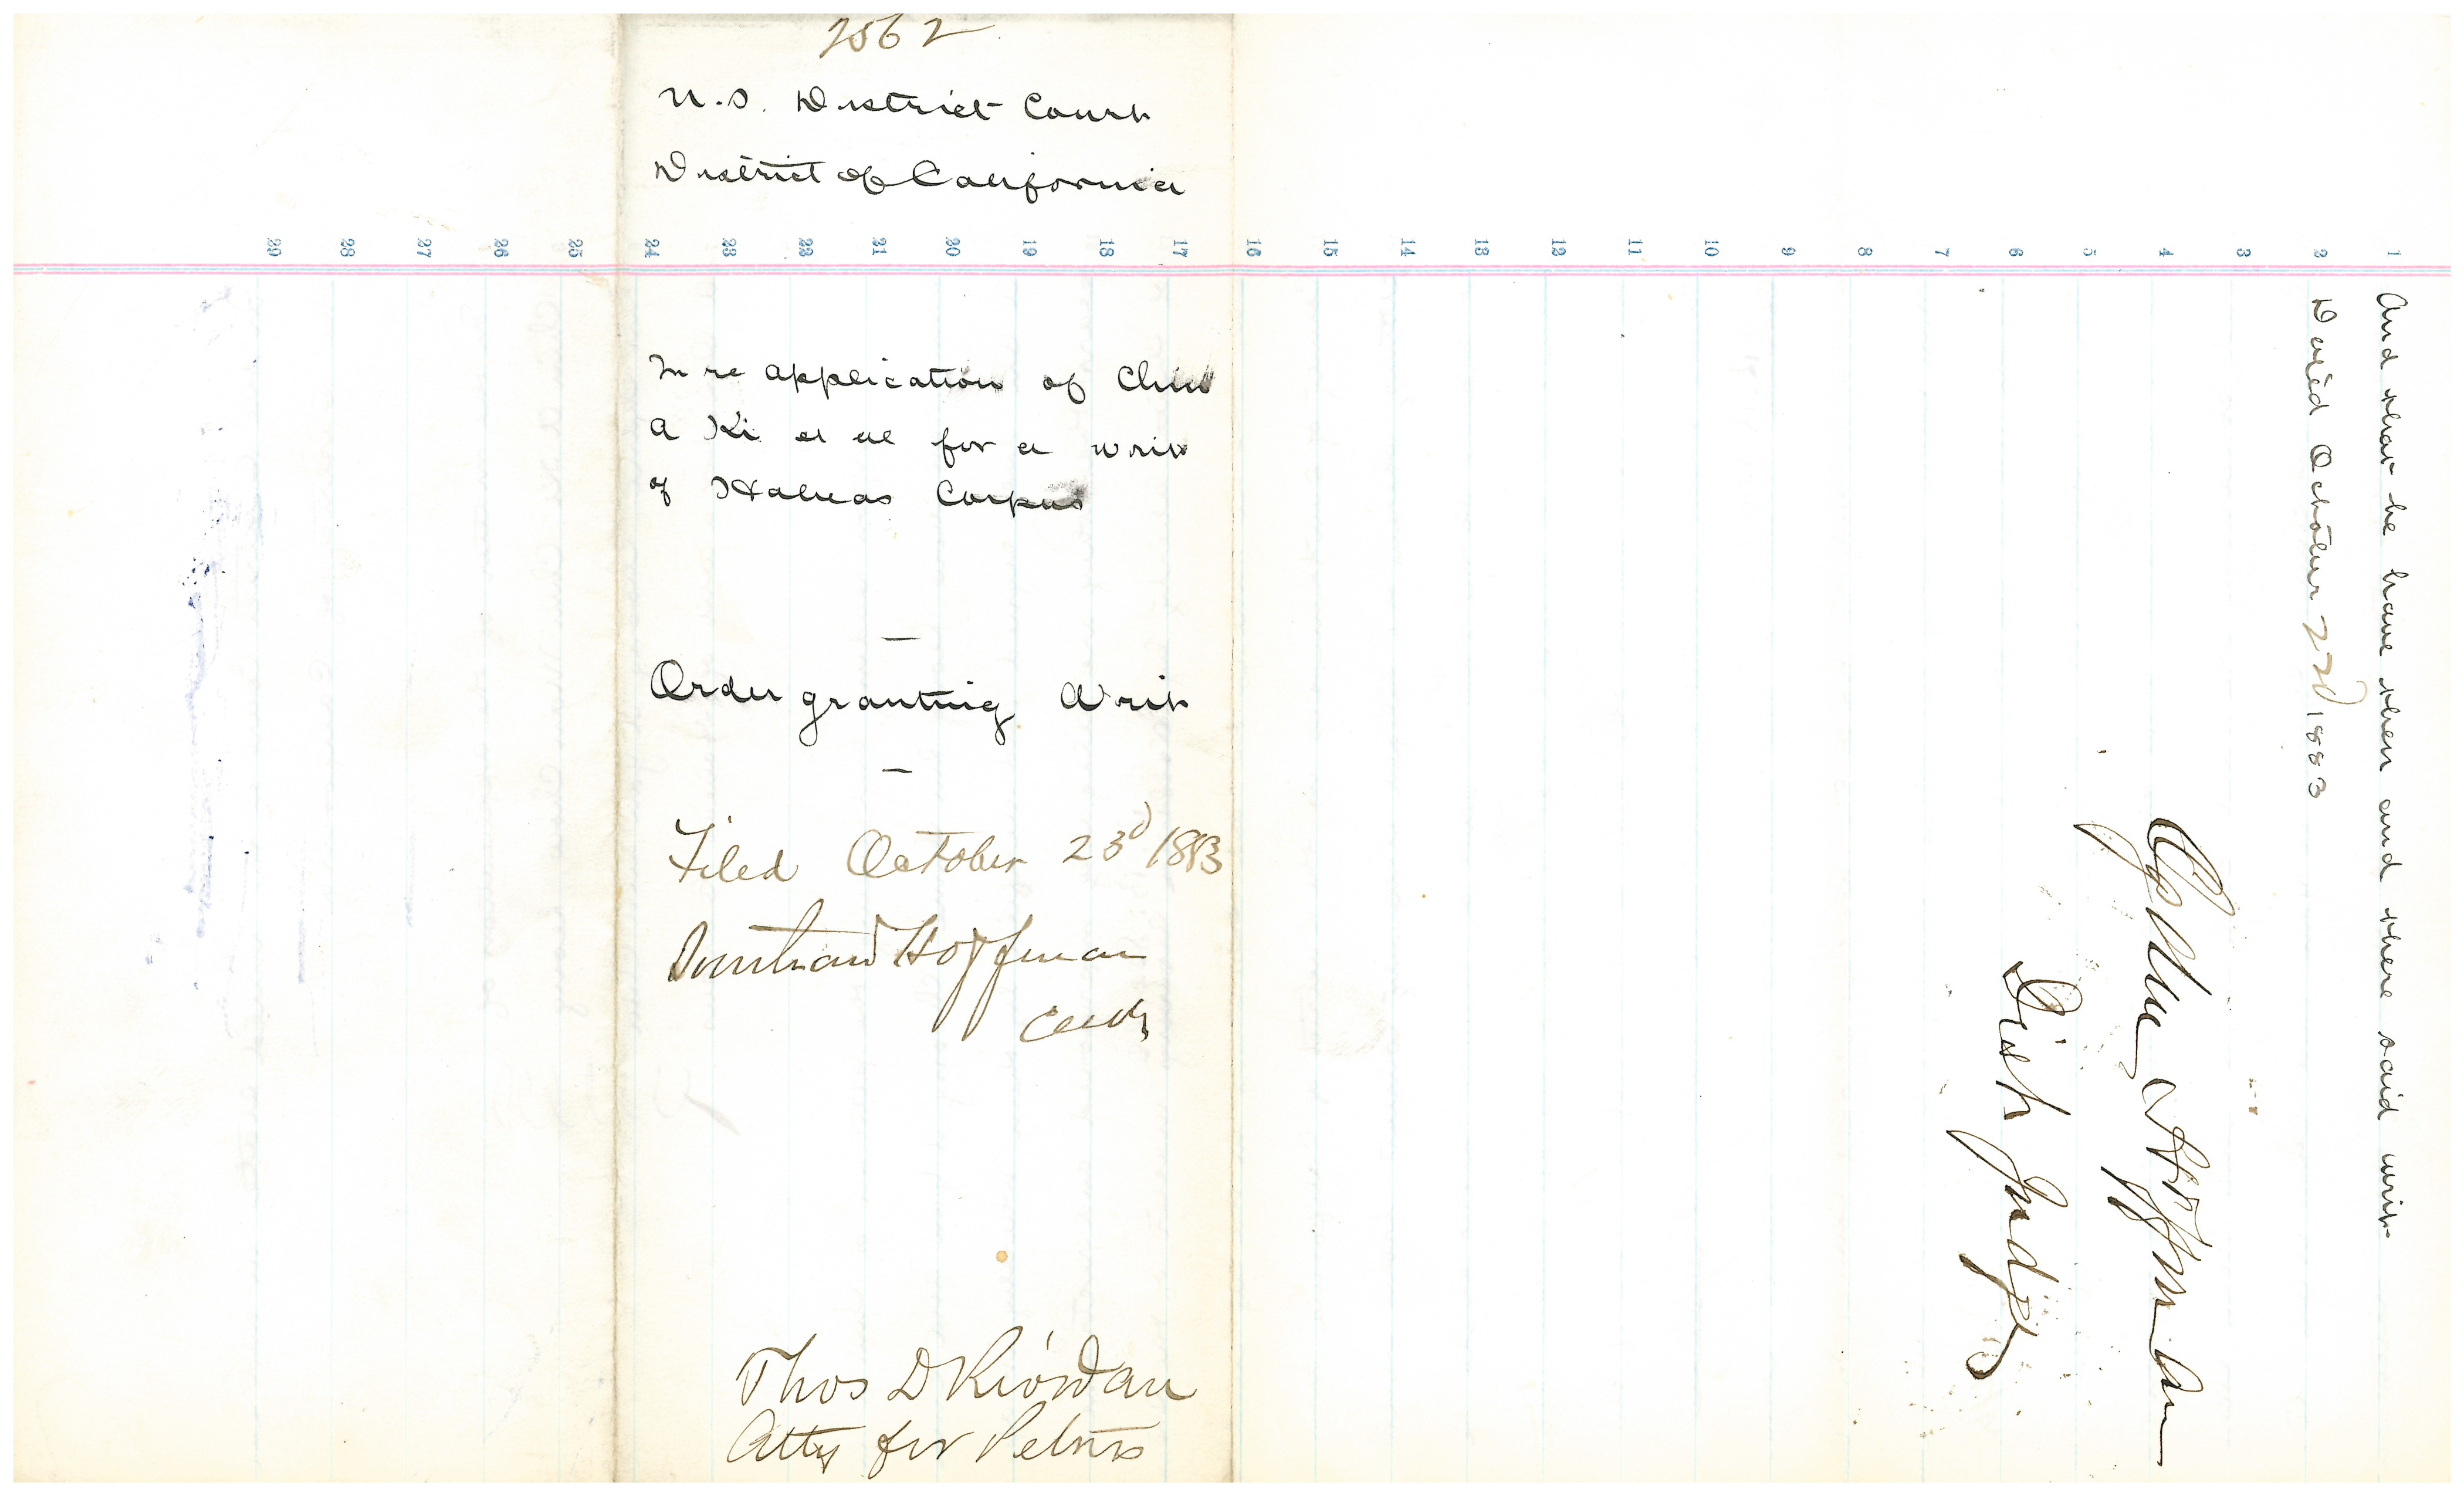 2562
U.S. District Court
District of California
In re application of Chin
A Ki et al for a writ
of Habeas Corpus
Order granting Writ
Filed October 23d 1883
Southard Hoffman
Clerk
Thos D Riordan
Atty for Petnrs
1 And that he have then and there said writ
2 Dated October 22d 1883
3
4 Ogden Hoffman
5
6 Dist Judge
7
8
9
10
11
12
13
14
15
16
17
18
19
20
21
22
23
24
25
26
27
28
29